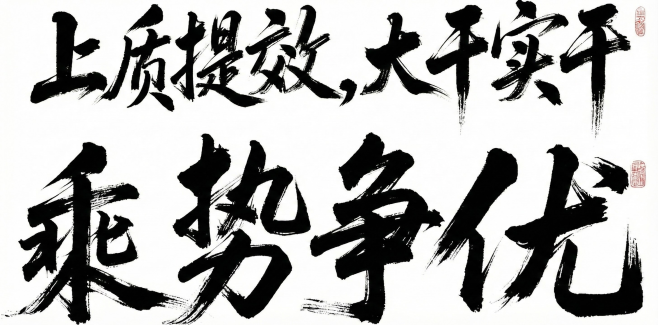 上质提效，大干实干
乘势争优